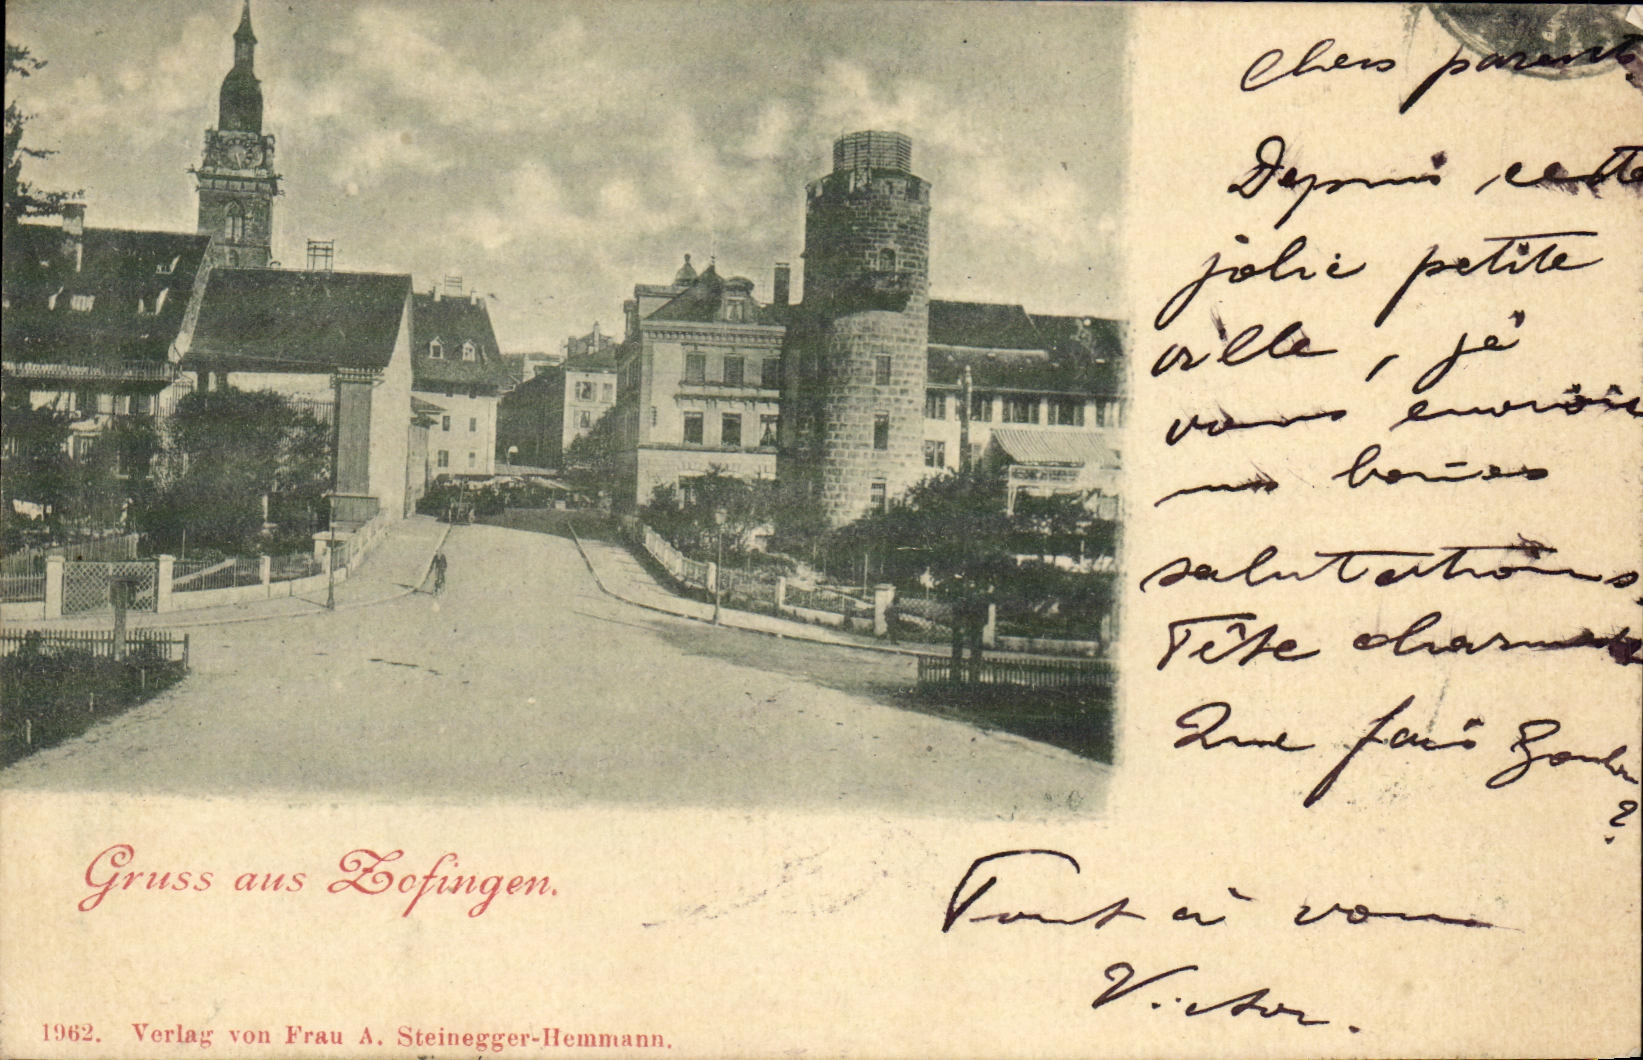 Chers parents.
Depuis cette
jolie petite
ville, je
vous envoie
mes bonnes
salutations.
Fête charmante
Que fais
?
Tout à vous
Victor.
Gruss aus Zofingen.
1962. Verlag von Frau A. Steinegger-Hemmann.